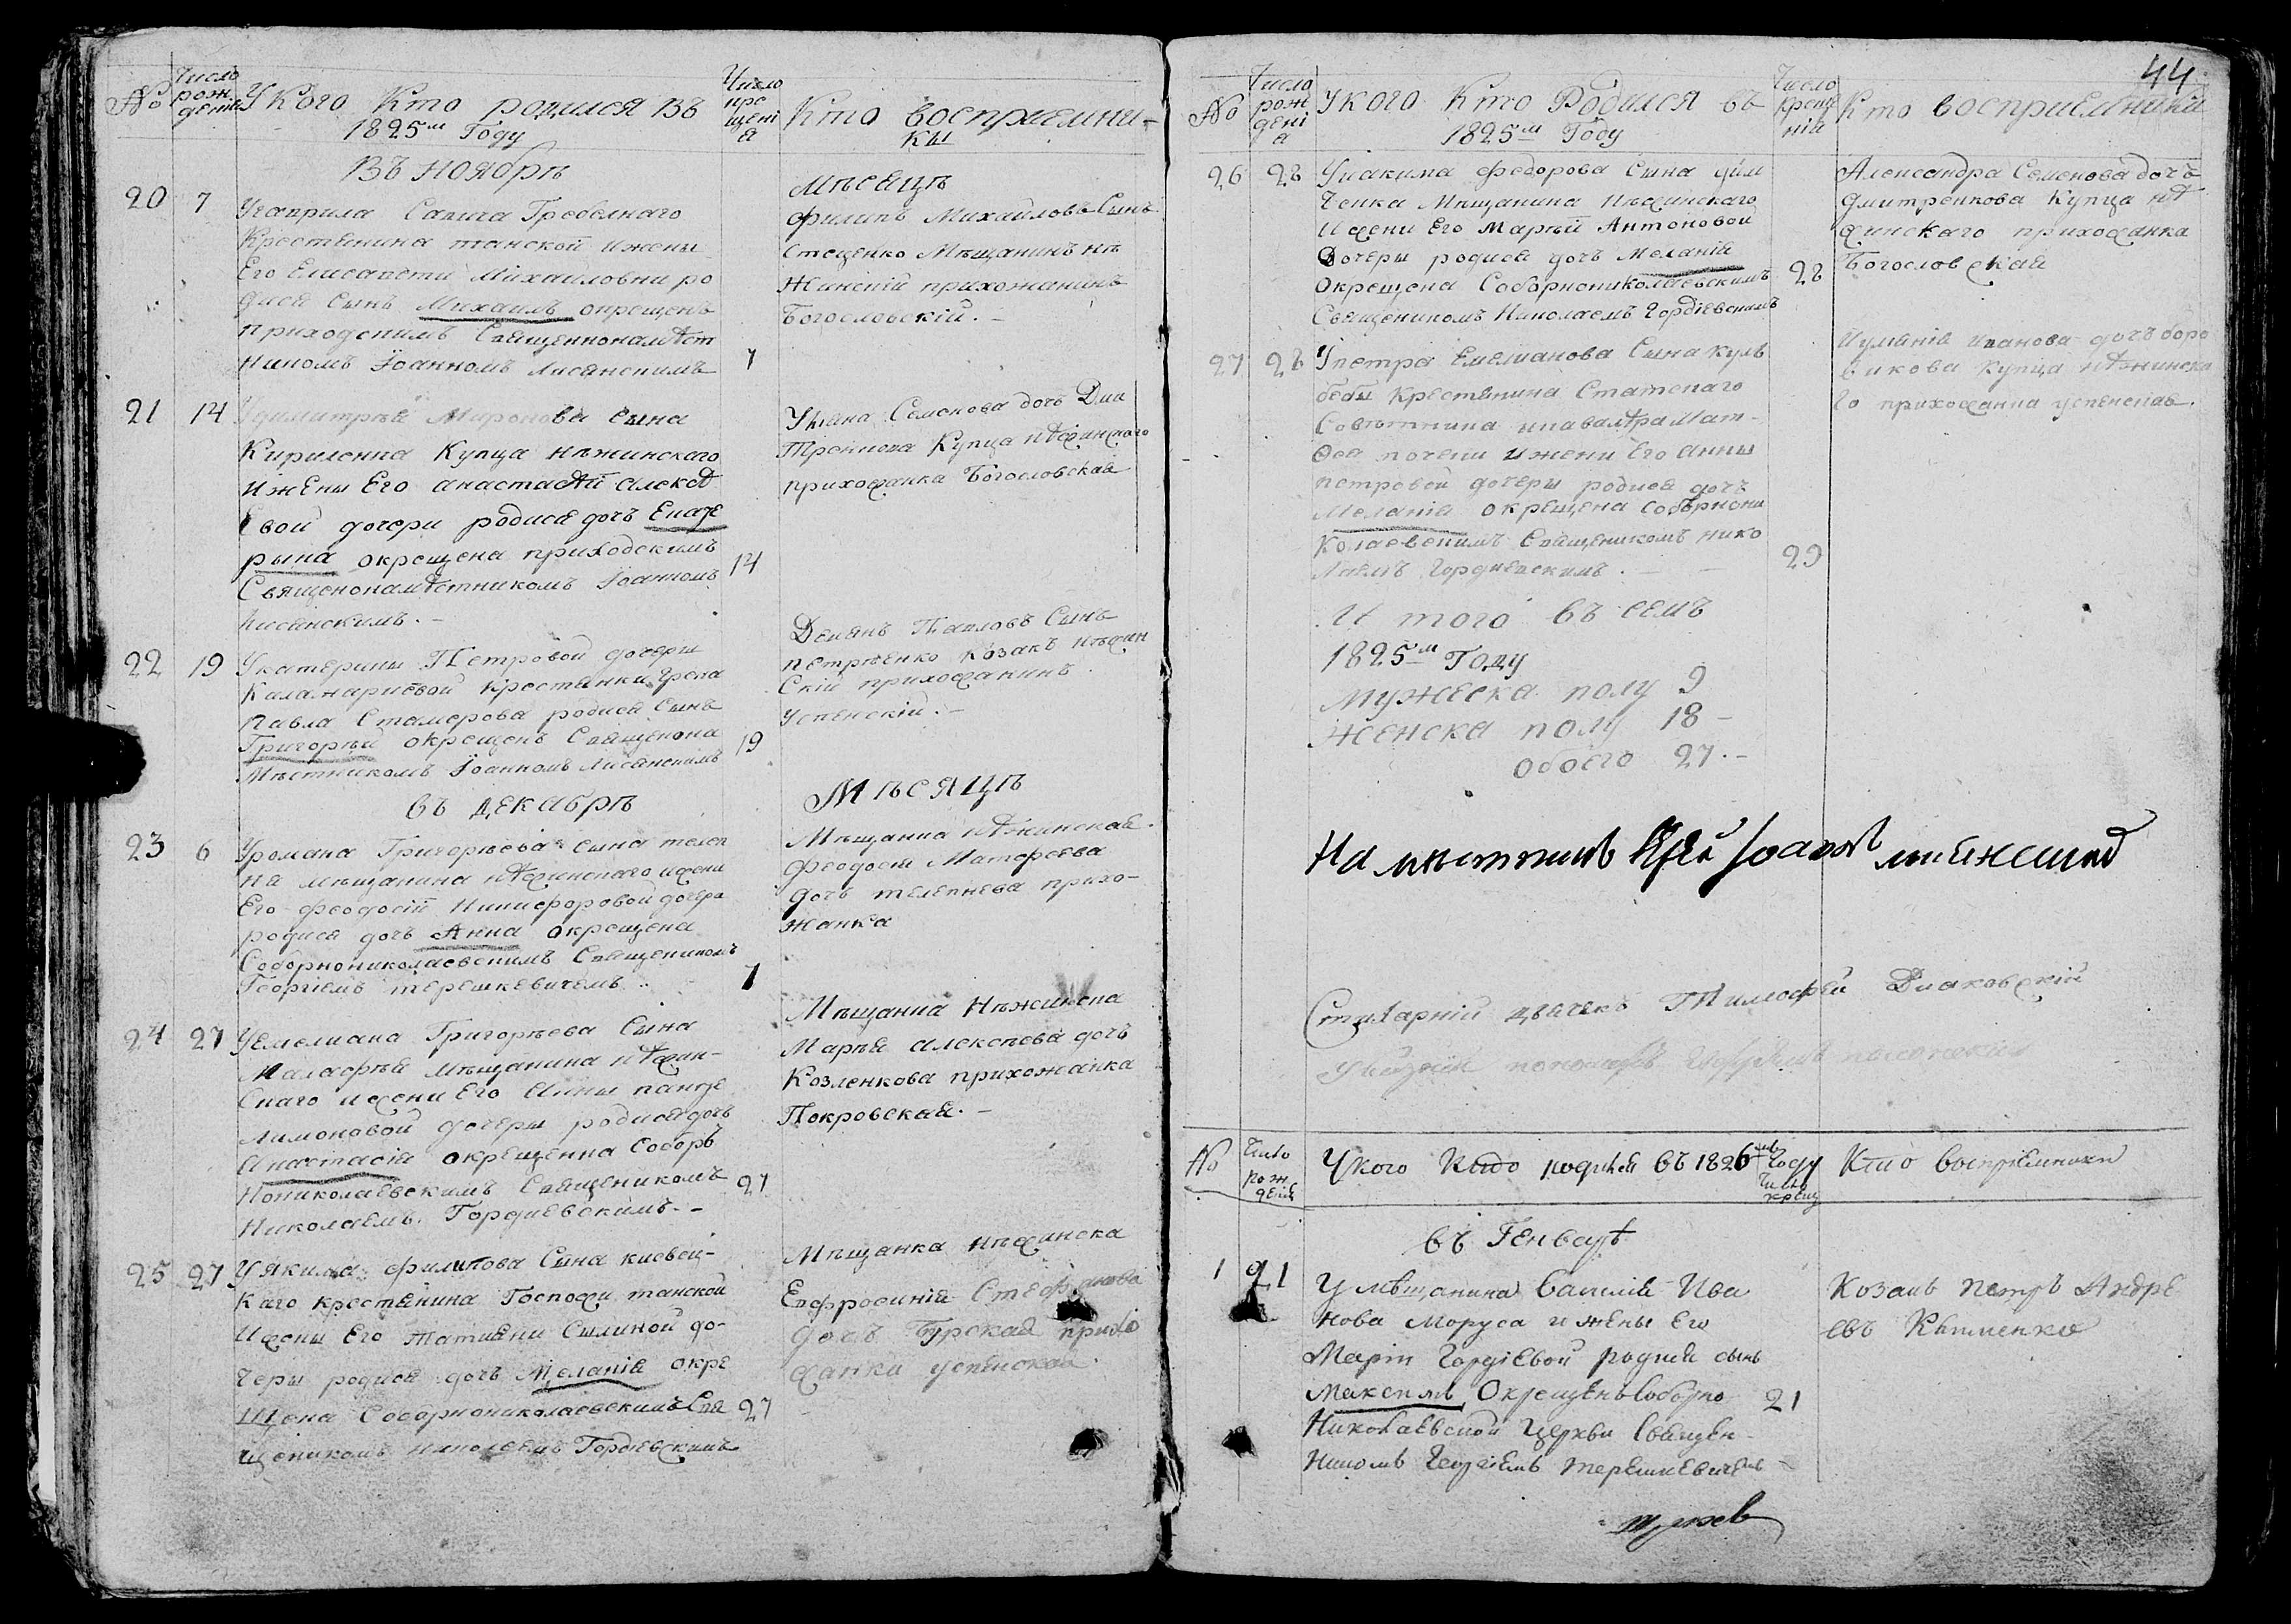 No
Число рождения
У кого кто родился въ 1825м Году
Число крещения
Кто восприемники
Въ ноябрѣ
мѣсяцѣ
20
7
Гребелнаго
Крестянина танской и жены
Его Елисавети Михаиловни ро
дися Сынъ Михаилъ окрещенъ
приходскимъ Священнонамѣст
никомъ Іоанномъ Лисянскимъ
7
Филипъ Михайловъ Сынъ
Стеценко Мѣщанинъ нѣ
жинскій прихожанинъ
Богословскій. —
21
14
У димитрія Миронова сына
Кириленка Купца нѣжинскаго
и жены Его анастасѣи алексѣ
евой дочери родися дочъ Екате
рына окрещена приходскимъ
Священонамѣстникомъ Іоанномъ
Лисянскимъ. —
14
Уліана Семенова дочъ Дми
Купца нѣжинскаго
прихожанка Богословская
22
19
У катерины Петровой дочеры
Крестянки Грека
Павла Стамерова родися Сынъ
Григорій окрещенъ Священона
мѣстникомъ Іоанномъ Лисянскимъ
19
Демянъ Павловъ Сынъ
петрѣенко козакъ нѣжин
скій прихожанинъ
успенскій. —
въ декабрѣ
мѣсяцѣ
23
6
У романа Григорьева сына телеп
на мѣщанина нѣжинскаго и жени
Его феодосій Никифоровой дочери
родися дочъ Анна окрещена
Соборнониколаевскимъ Священикомъ
Георгіемъ терешкевичемъ
7
Мѣщанка нѣжинская
феодосія Матфеева
дочъ телепнева прихо-
жанка
24
27
У Емелиана Григорьева Сына
Малафѣя мѣщанина нѣжин-
скаго и жени Его Анны панте
лимоновой дочеры родися дочъ
Анастасія окрещенна Собор
нониколаевскимъ Священикомъ
Николаемъ Гордиевскимъ. —
27
Мѣщанка Нѣжинска
Марѣя алексѣева дочъ
Козленкова прихожанка
Покровская. —
25
27
У якима филипова Сына киевец-
каго крестянина Господи танской
и жены Его Татиани Силиной до-
черы родися дочъ Меланія окре
щена Соборнониколаевскимъ Свя
щеникомъ николаемъ Гордіевскимъ
27
Мѣщанка нѣжинска
Евфросинія Стефанова
дочъ Турская прихо
жанка успенская.
44.
No
Число рожденія
У кого кто Родился въ 1825м Году
Число крещенія
Кто восприемники
26
28
У иакима федорова Сына
ченка мѣщанина нѣжинскаго
и жени Его Маріи Антоновой
дочеры родися дочъ Меланія
окрещена Соборнониколаевскимъ
Священикомъ Николаемъ Гордіевскимъ
28
Александра Семенова дочъ
Дмитренкова Купца нѣ
жинскаго прихожанка
Богословская
27
28
У петра Емелианова Сына куль
бабы крестянина Статскаго
Совѣтника
и жени Его анны
петровой дочеры родися дочъ
Меланія окрещена соборнони
колаевскимъ Священикомъ нико
лаемъ Гордиевскимъ. —
29
Иуліанія иванова дочъ боро
викова купца нѣжинска
го прихожанка успенская.
И того въ семъ
1825м Году
мужеска полу 9
женска полу 18 —
обоего 27. —
Намѣстникъ Іерей Іоаннъ Лисянский
Стихарній дячекъ Тимофей Диаковскій
No
Число рожденія
У кого кто родился въ 1826мъ Году
Число крещ
Кто воспріемники
въ Генварѣ
1
21
У мѣщанина Василія Ива
нова Моруса и жены Его
Маріи Гордіевой родися сынъ
Максимъ Окрещенъ Соборно
Николаевской Церкви Священ-
никомъ Георгіемъ терешкевичемъ
21
Козакъ Петръ Андре
евъ